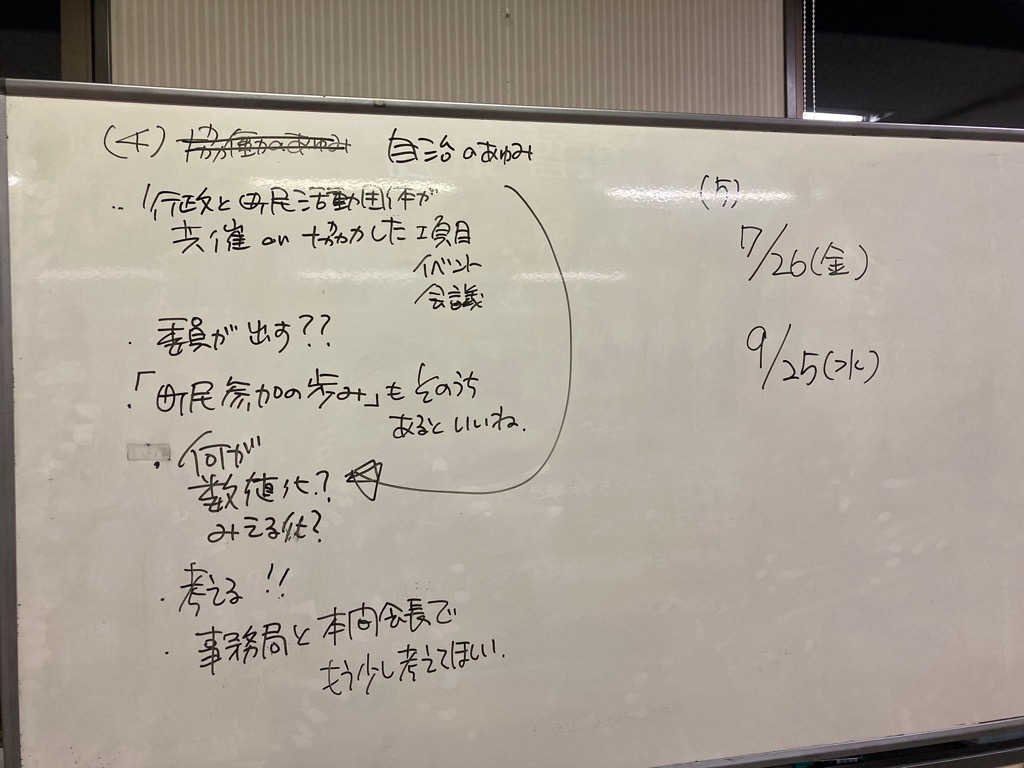 (4) 協働のあゆみ 自治のあゆみ
・行政と町民活動団体が
共催 or 協力した項目
イベント
会議
・委員が出す??
・「町民参加の歩み」もそのうち
あるといいね.
・何が
数値化?
みえる化?
・考える!!
・事務局と本間会長で
もう少し考えてほしい.
(5)
7/26(金)
9/25(水)